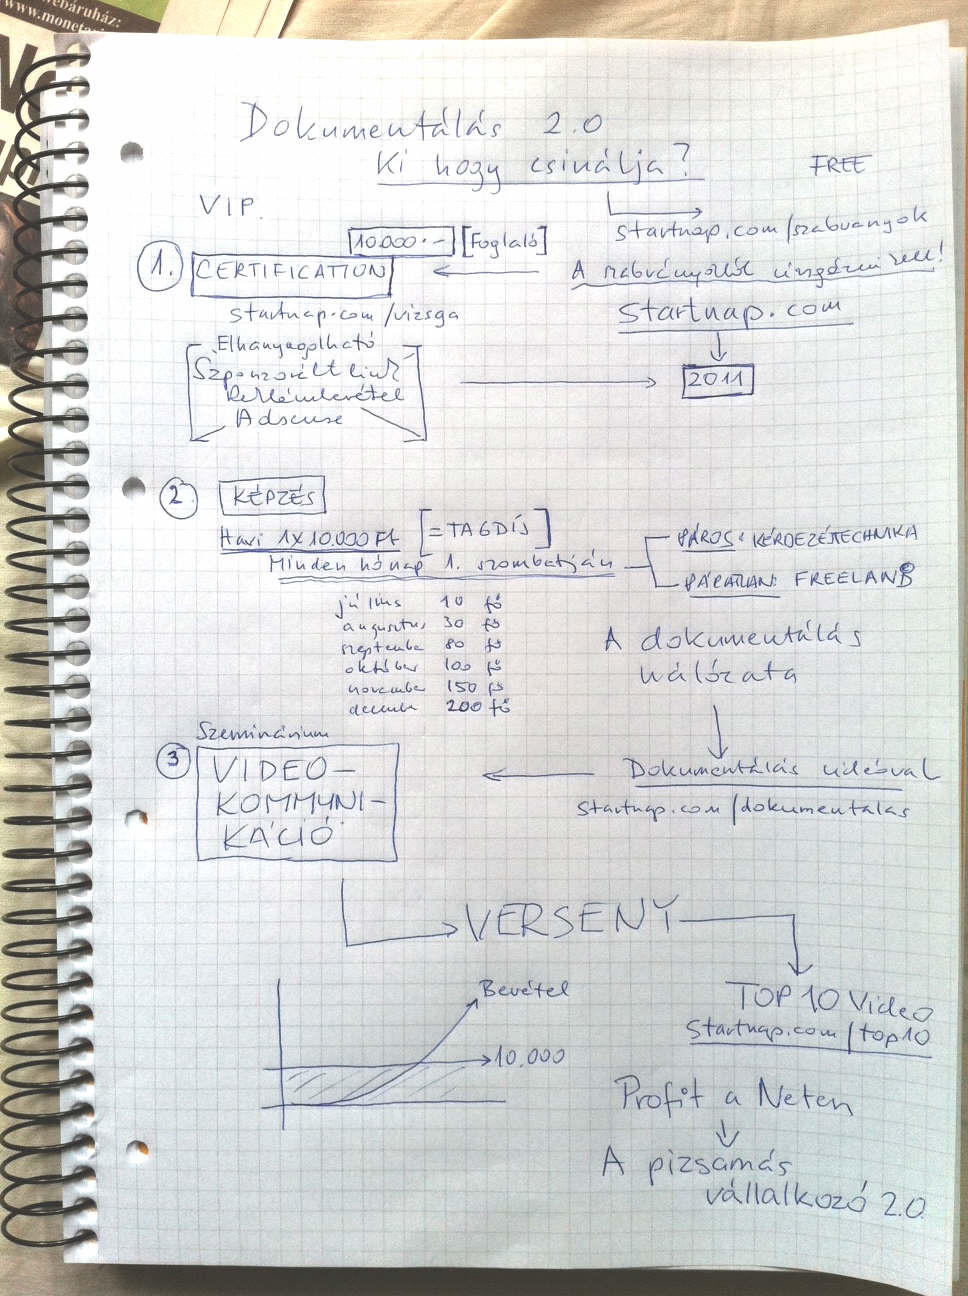 ebáruház:
www.moneta
Dokumentálás 2.0
Ki hogy csinálja?
FREE
VIP.
startnap.com/szabvanyok
10.000.- [Foglaló]
1. CERTIFICATION
A szabványokból vizsgázni kell!
startnap.com/vizsga
startnap.com
Elhanyagolható
Szponzorált link
Reklámbevétel
Adsense
2011
2. KÉPZÉS
Havi 1x10.000 Ft [=TAGDÍJ]
Minden hónap 1. szombatján
PÁROS: KÉRDEZÉTECHNIKA
PÁRATLAN: FREELANB
július 10 fő
augusztus 30 fő
szeptember 80 fő
október 100 fő
november 150 fő
december 200 fő
A dokumentálás
hálózata
Szeminárium
3 VIDEO-
KOMMUNI-
KÁCIÓ
Dokumentálás videóval
startnap.com/dokumentalas
VERSENY
TOP 10 Video
startnap.com/top10
Bevétel
10.000
Profit a Neten
A pizsamás
vállalkozó 2.0